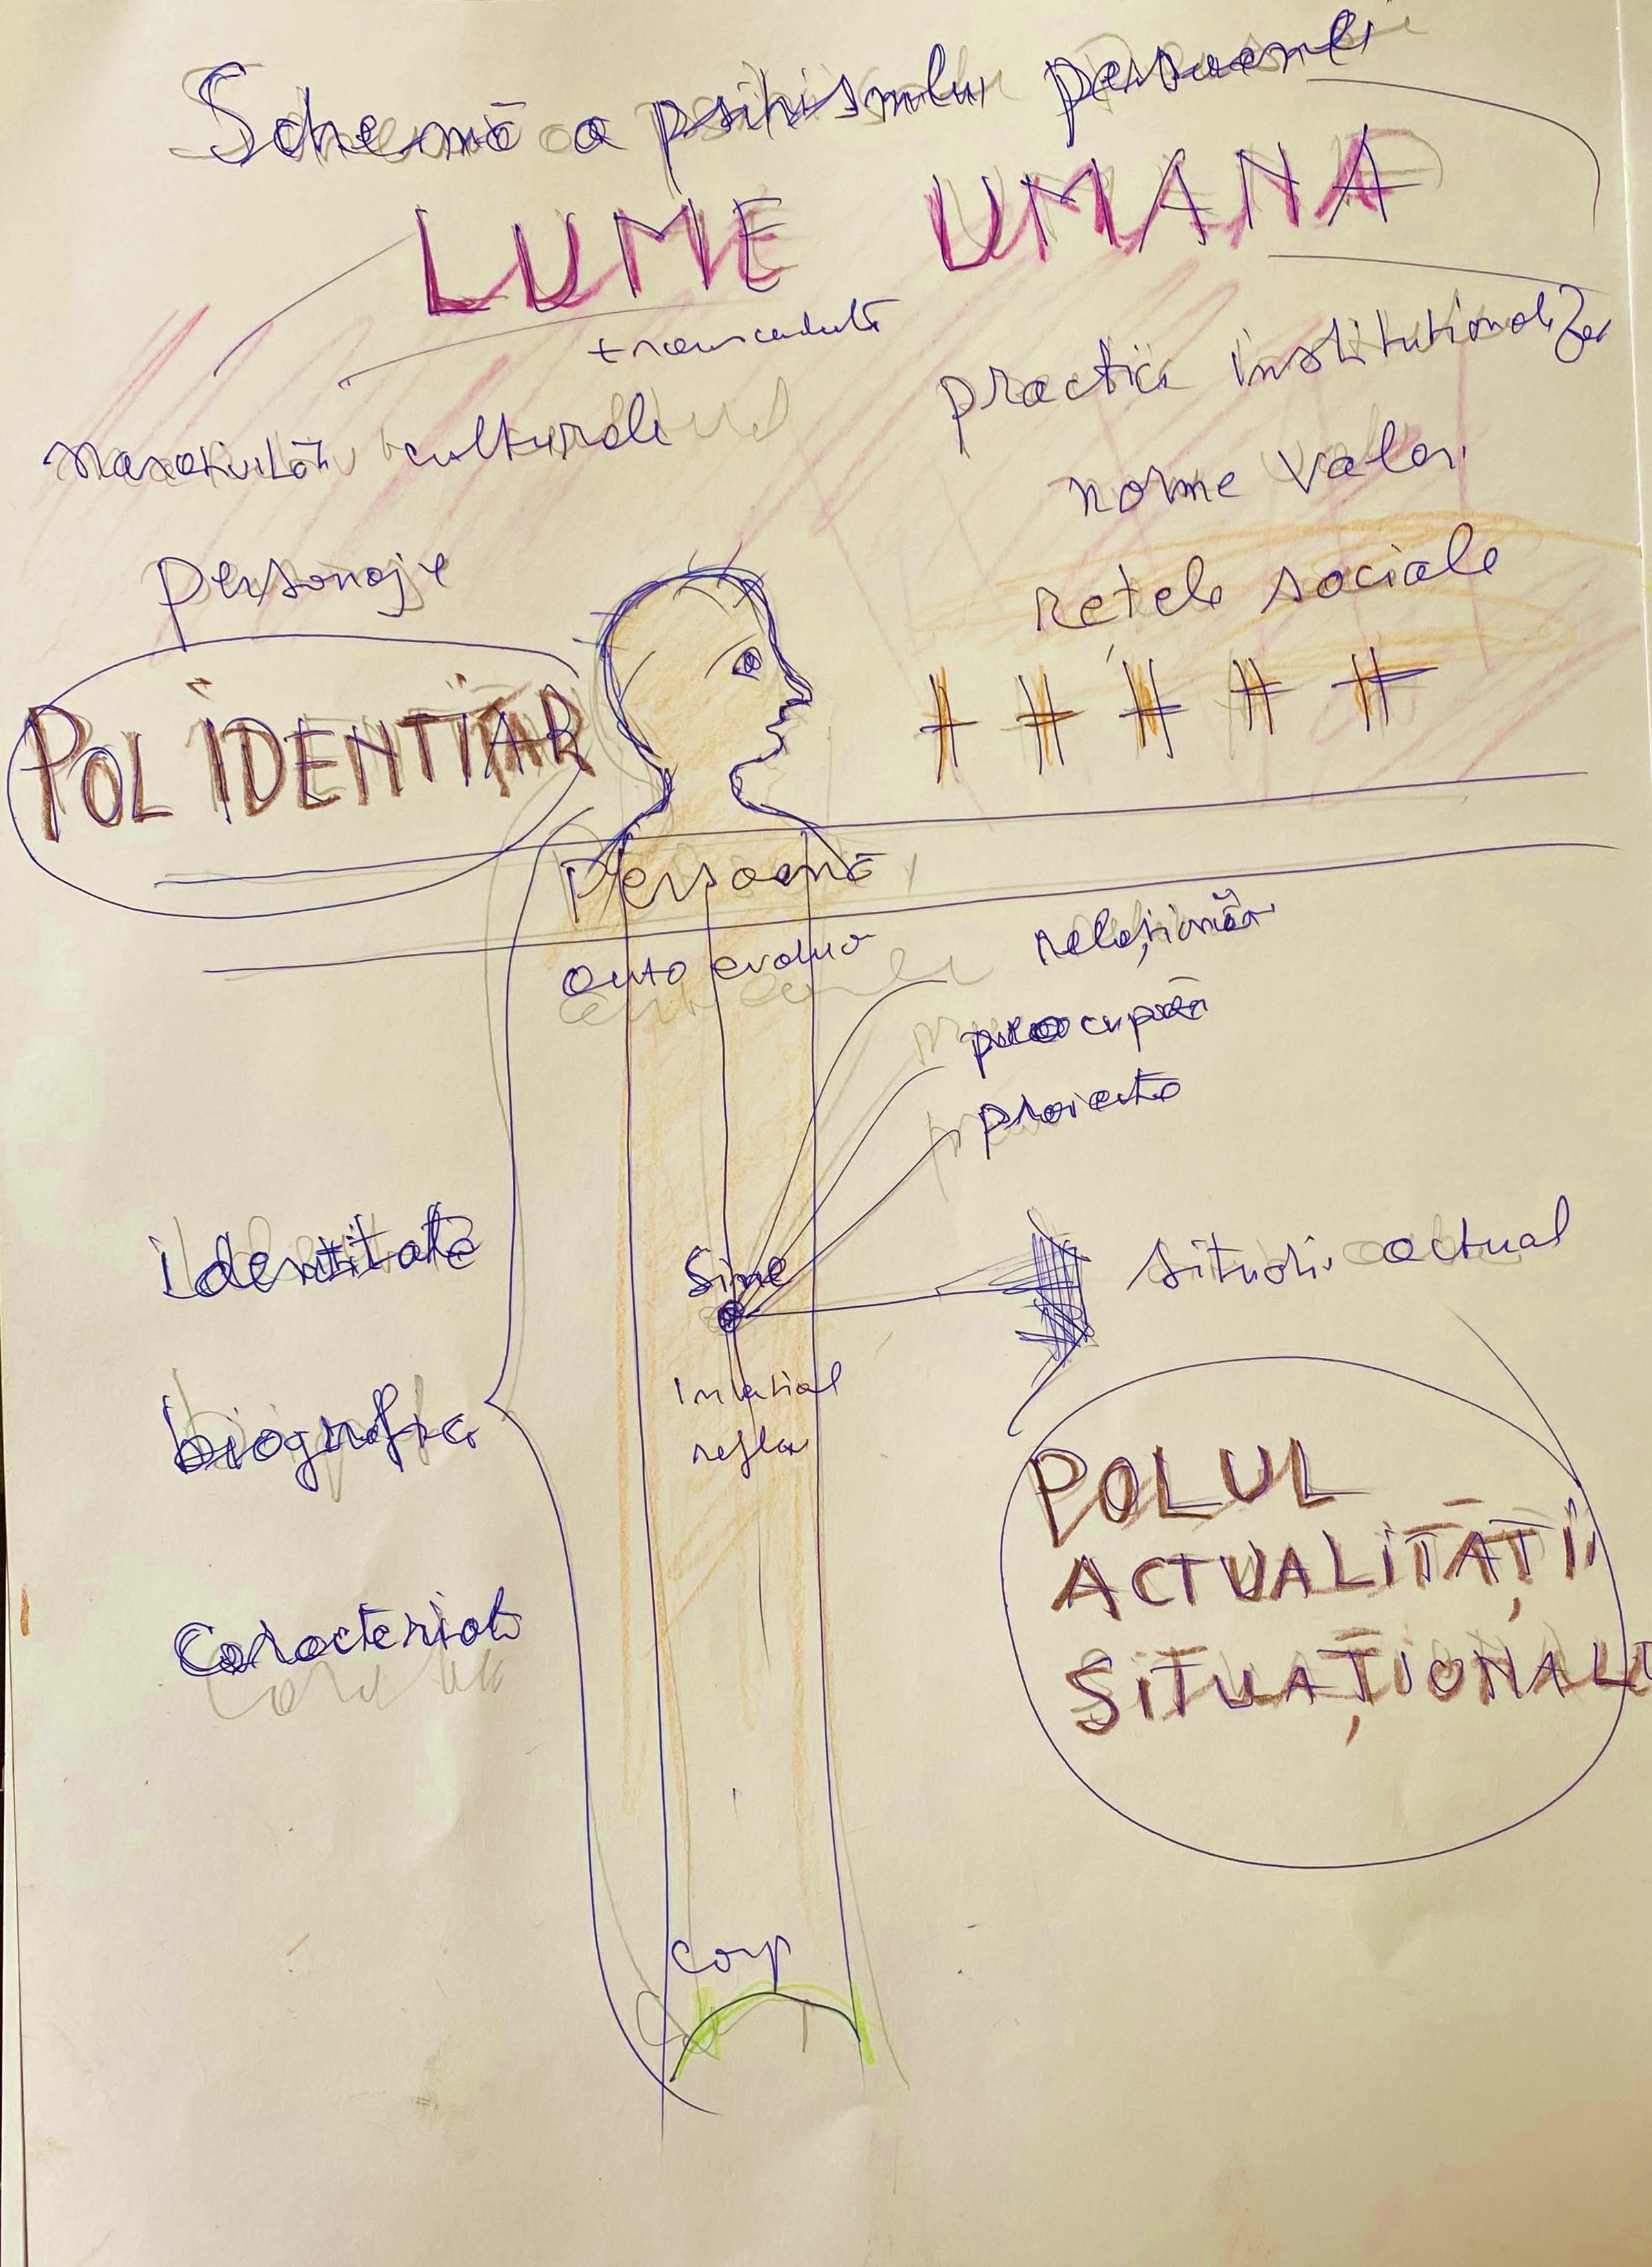 Schemă a psihismului persoanei
LUME UMANA
narativități culturale
practici instituționaliz
norme valori
personaje
rețele sociale
POL IDENTITAR
Persoană
auto
relaționări
preocupări
proiecte
identitate
Sine
situați actual
biografia
POLUL
ACTUALITĂȚII
SITUAȚIONALE
Caracterial
corp